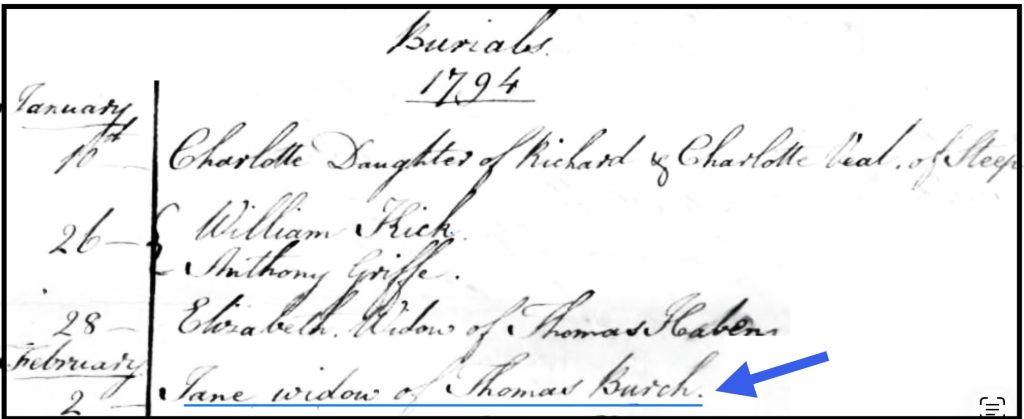 Burials.
1794
January
10th Charlotte Daughter of Richard & Charlotte Veal. of Steep
26 — { William Kick.
Anthony Griffe.
28 — Elizabeth. Widow of Thomas Haben
February
2 — Jane widow of Thomas Burch.